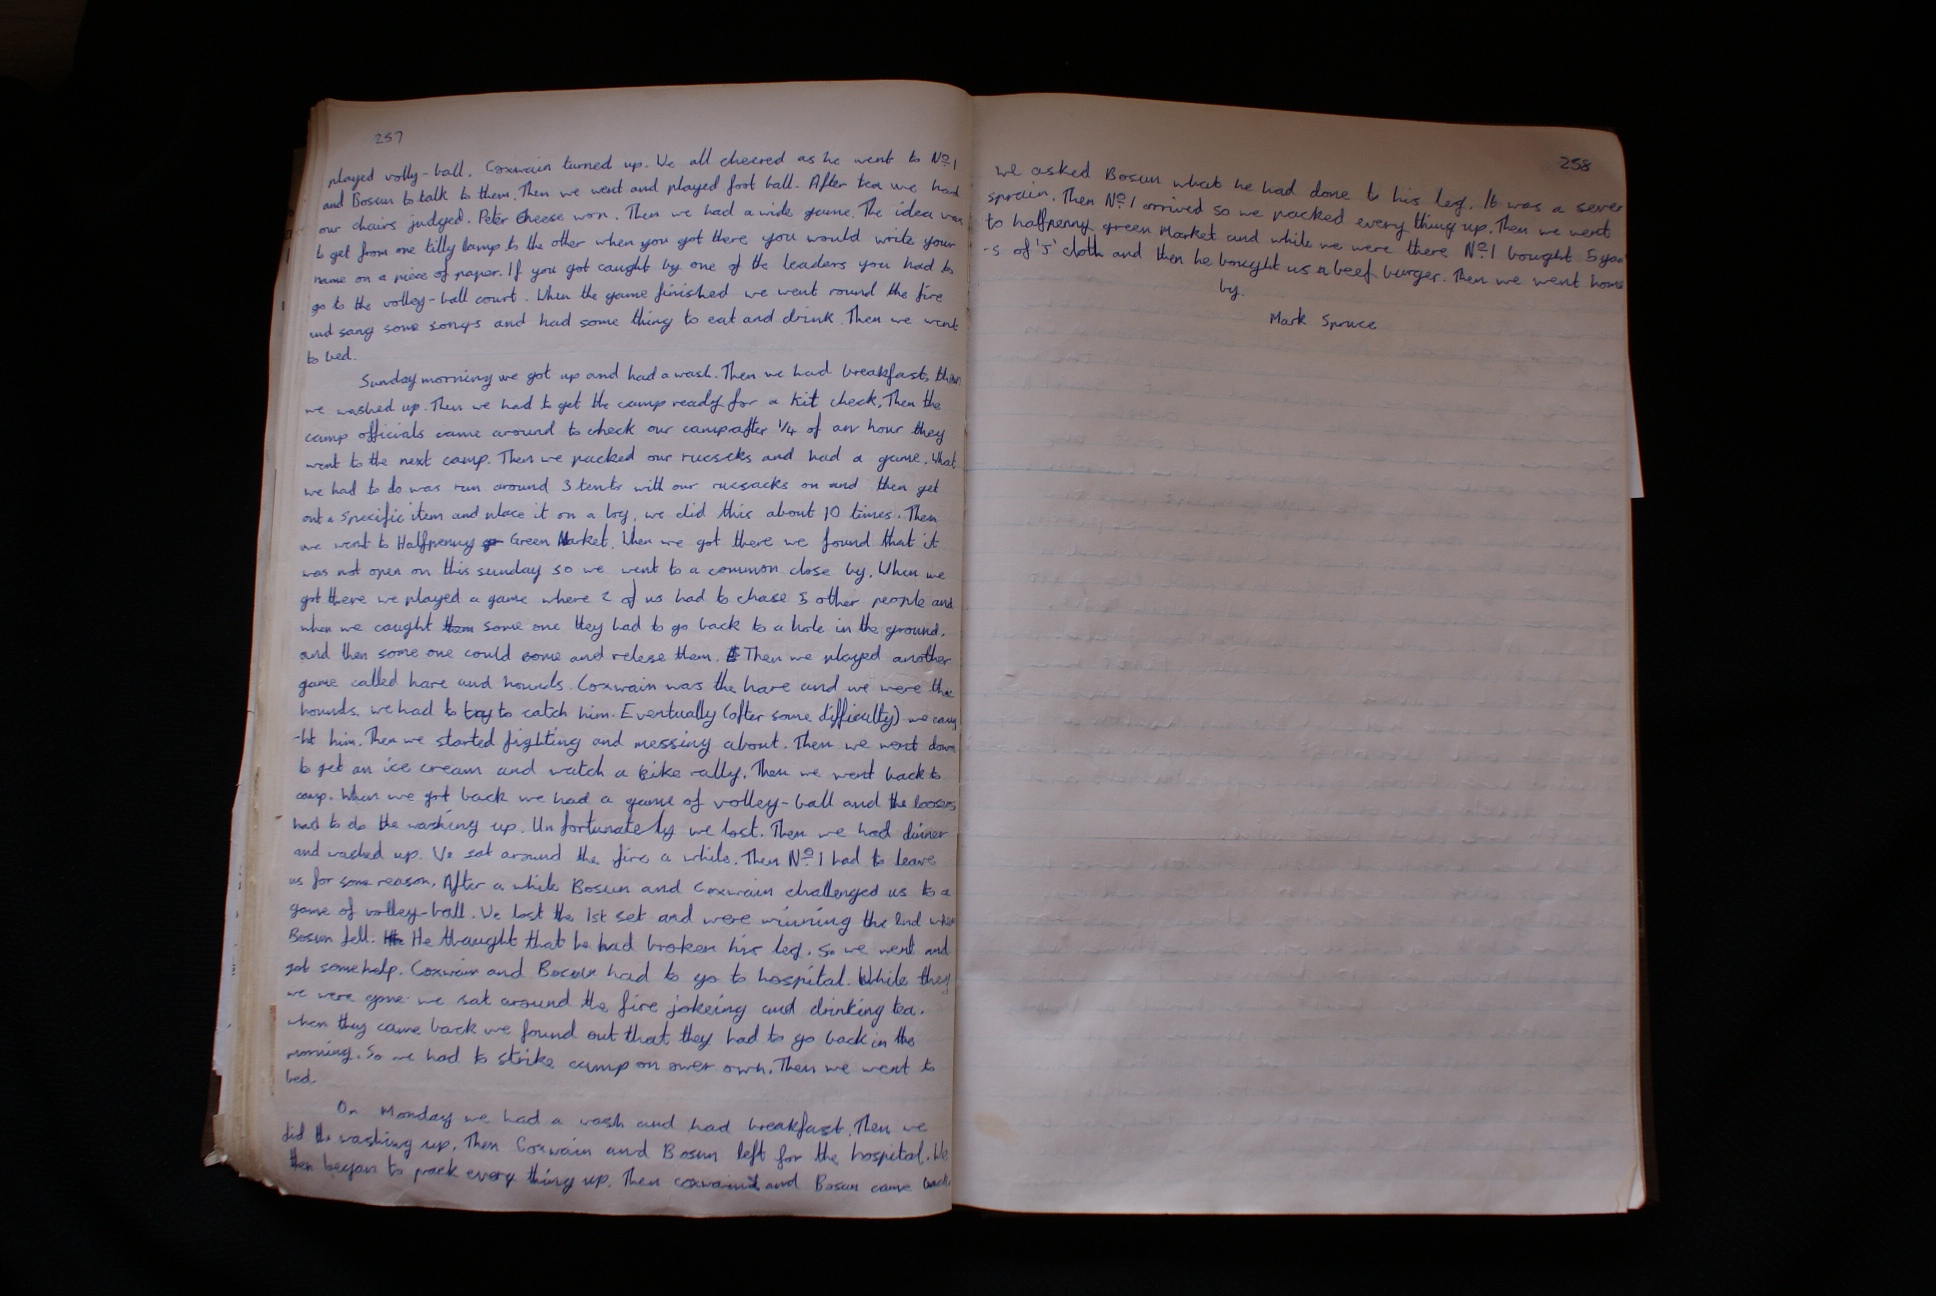 257
played volly-ball. Coxwain turned up. We all cheered as he went to Nº1
and Bosun to talk to them. Then we went and played foot ball. After tea we had
our chairs judged. Peter Cheese won. Then we had a wide game. The idea was
to get from one tilly lamp to the other when you got there you would write your
name on a piece of paper. If you got caught by one of the leaders you had to
go to the volley-ball court. When the game finished we went round the fire
and sang some songs and had some thing to eat and drink. Then we went
to bed.
Sunday morning we got up and had a wash. Then we had breakfast, then
we washed up. Then we had to get the camp ready for a kit check. Then the
camp officials came around to check our camp after 1/4 of an hour they
went to the next camp. Then we packed our rucscks and had a game. What
we had to do was run around 3 tents with our rucsacks on and then get
out a specific item and place it on a log, we did this about 10 times. Then
we went to Halfpenny Green Market. When we got there we found that it
was not open on this sunday so we went to a common close by. When we
got there we played a game where 2 of us had to chase 5 other people and
when we caught them some one they had to go back to a hole in the ground.
and then some one could come and relese them. Then we played another
game called hare and hounds. Coxwain was the hare and we were the
hounds. we had to try to catch him. Eventually (after some difficulty) we caug
-ht him. Then we started fighting and messing about. Then we went down
to get an ice cream and watch a bike rally. Then we went back to
camp. When we got back we had a game of volley-ball and the loosers
had to do the washing up. Unfortunately we lost. Then we had dinner
and washed up. We sat around the fire a while. Then Nº1 had to leave
us for some reason. After a while Bosun and Coxwain challenged us to a
game of volley-ball. We lost the 1st set and were winning the 2nd when
Bosun fell. He thaught that he had broken his leg. So we went and
got some help. Coxwain and Bosun had to go to hospital. While they
we were gone we sat around the fire jokeing and drinking tea.
when they came back we found out that they had to go back in the
morning. So we had to strike camp on ower own. Then we went to
bed.
On Monday we had a wash and had breakfast. Then we
did the washing up. Then Coxwain and Bosun left for the hospital. We
then began to pack every thing up. Then coxwain and Bosun came back.
258
we asked Bosun what he had done to his leg. It was a sever
sprain. Then Nº1 arrived so we packed every thing up. Then we went
to halfpenny green Market and while we were there Nº1 bought 5 yar
-s of 'J' cloth and then he bought us a beef burger. Then we went home
by.
Mark Spruce